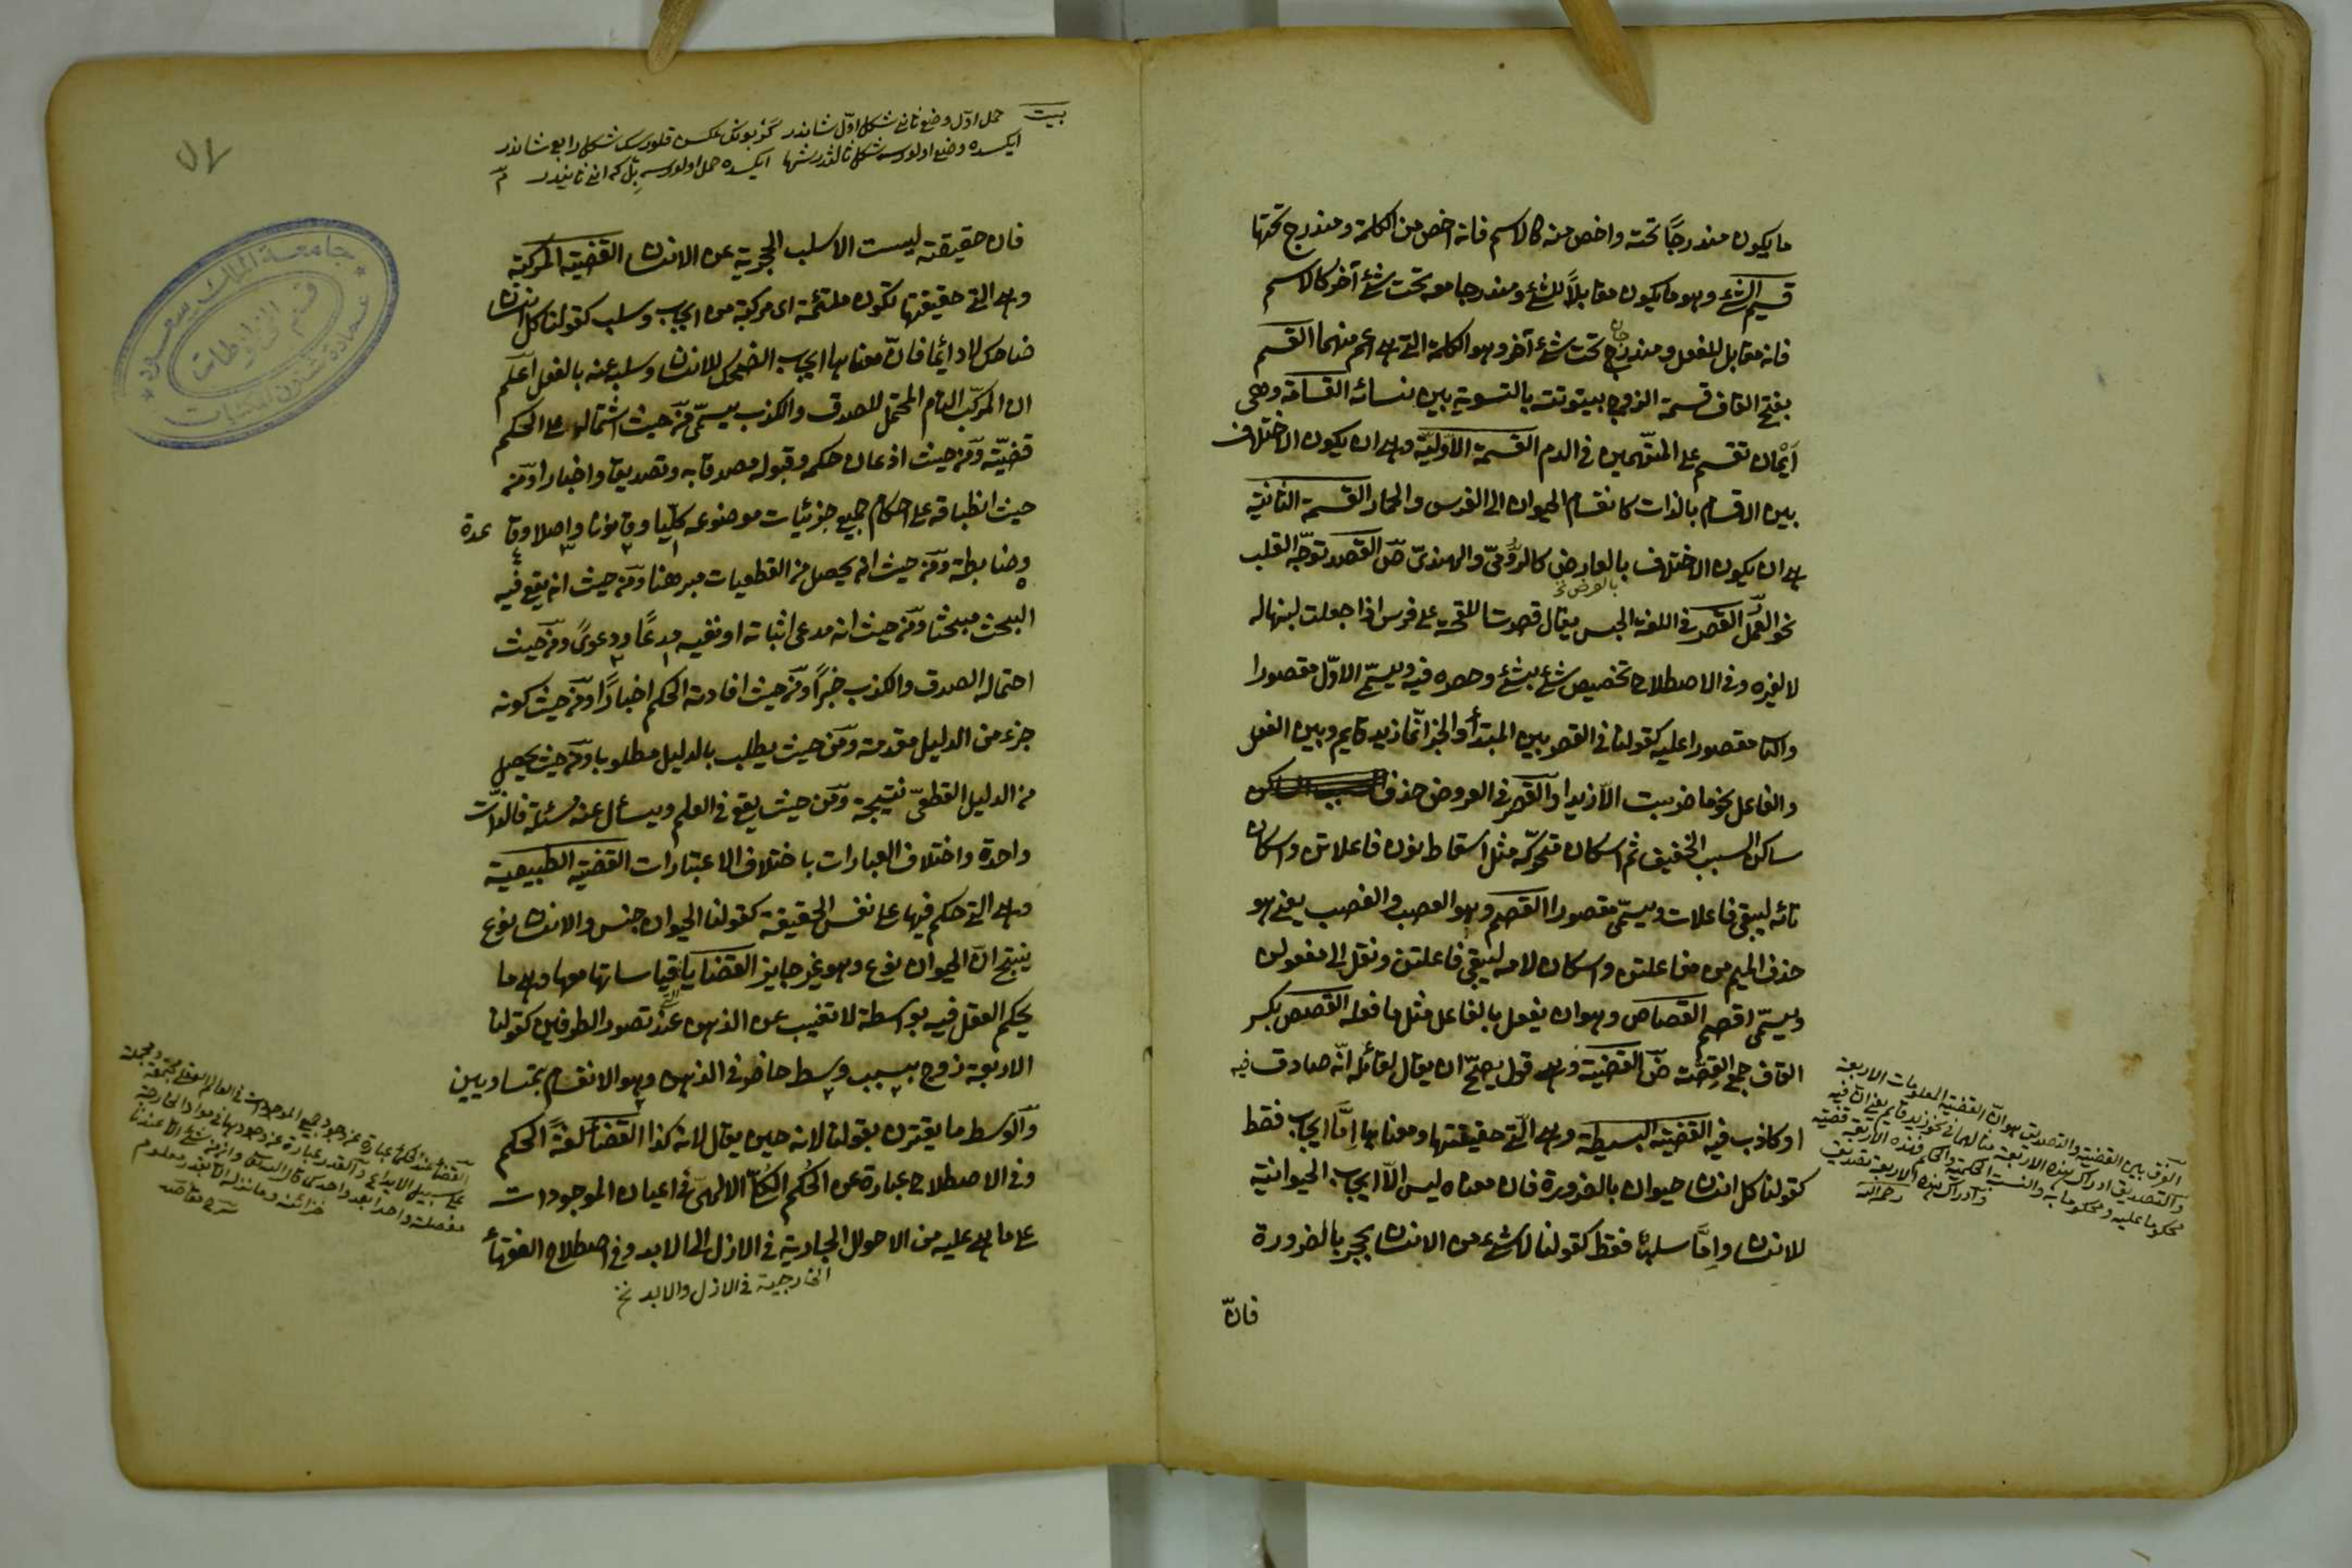 ما يكون مندرجًا تحته واخص منه كالاسم فانه اخص من الكلمة ومندرج تحتها
قسيم الشئ وهو ما يكون مقابلاً للشئ ومندرجا معه تحت شئ آخر كالاسم
فانه مقابل للفعل ومندرجان تحت شئ آخر وهو الكلمة التى هى اعم منهما القسم
بفتح القاف قسمة الزوج بيتوتته بالتسوية بين نسائه القسامة وهى
أيْمان تقسم على المتّهمين فى الدم القسمة الاوّليّة وهى ان يكون الاختلاف
بين الاقسام بالذات كانقسام الحيوان الى الفرس والحمار القسمة الثانية
هى ان يكون الاختلاف بالعارض كالرُّومىّ والهندىّ ص القصد توجّه القلب
بالعرض نخ
نحو العمل القصر فى اللغة الحبس يقال قصرت اللقحة على فرس اذا جعلت لبنها له
لا لغيره وفى الاصطلاح تخصيص شئ بشئ وحصره فيه ويسمّى الاوّل مقصورا
والثا مقصورا عليه كقولنا فى القصر بين المبتدأ والخبر انّما زيد قايم وبين الفعل
والفاعل نحو ما ضربت الاّ زيدا والقصر فى العروض حذف
ساكن السبب الخفيف ثم اسكان متحرّكه مثل اسقاط نون فاعلاتن واسكان
تائه ليبقى فاعلات ويسمّى مقصورا القصم وهو العصب والعضب يعنى هو
حذف الميم من مفاعلتن واسكان لامه ليبقى فاعلتن ونقل الى مفعولن
ويسمّى اقصم القصاص وهو ان يفعل بالفاعل مثل ما فعل القصص بكسر
القاف جمع القِصّة ض القضية وهى قول يصحّ ان يقال لقائله انّه صادق فيه
او كاذب فيه القضية البسيطة وهى الّتى حقيقتها ومعناها اِمَّا ايجاب فقط
كقولنا كل انسان حيوان بالضرورة فان معناه ليس الاّ ايجاب الحيوانية
للانسان واِمَّا سلب فقط كقولنا لا شئ من الانسان بحجر بالضرورة
فانّ
الفرق بين القضية والتصديق هو انّ القضية المعلومات الاربعة
والتصديق ادراك هذه الاربعة مثالهما فى نحو زيد قايم يعنى انّ فيه
محكوما عليه ومحكوما به والنسبة الحكمية والحكم فهذه الاربعة قضية
وادراك هذه الاربعة تصديق
رحمه الله
بيت حمل اوّل وضع ثانى شكل اوّل شاندر
ايكسده وضع اولورسه شكل ثالثدر شها ايكسده حمل اولورسه بل كه انى ثانيدر م
فان حقيقته ليست الا سلب الحجرية عن الانسان القضية المركبة
وهى التى حقيقتها تكون ملتئمة اى مركبة من ايجاب وسلب كقولنا كل انسان
ضاحك لا دائما فانّ معناها ايجاب الضحك للانسان وسلبه عنه بالفعل اعلم
ان المركّب التام المحتمل للصدق والكذب يسمّى من حيث اشتماله على الحكم
قضيّة ومن حيث اذعان حكمه وقبوله مصدقا به وتصديقا واخبارا ومن
حيث انطباقه على احكام جميع جزئيات موضوعه كلّيا وقانونا واصلا وقاعدة
وضابطة ومن حيث انه يحصل من القطعيات مبرهنا ومن حيث انه يقع فيه
البحث مبحثا ومن حيث انه مدعى اثباته او نفيه مدعًا ودعوىً ومن حيث
احتماله الصدق والكذب خبرًا ومن حيث افادته الحكم اخبارًا ومن حيث كونه
جزء من الدليل مقدمة ومن حيث يطلب بالدليل مطلوبا ومن حيث يحصل
من الدليل القطعىّ نتيجة ومن حيث يقع فى العلم ويسأل عنه مسئلة فالذات
واحدة واختلاف العبارات باختلاف الاعتبارات القضية الطبيعية
وهى التى حكم فيها على نفس الحقيقة كقولنا الحيوان جنس والانسان نوع
ينتج ان الحيوان نوع وهو غير جايز القضايا قياساتها معها وهى ما
يحكم العقل فيه بواسطة لا تغيب عن الذهن عند تصور الطرفين كقولنا
الاربعة زوج بسبب وسط حاضر فى الذهن وهو الانقسام بمتساويين
والوسط ما يقترن بقولنا لانه حين يقال لانه كذا القضاء لغةً الحكم
وفى الاصطلاح عبارة عن الحُكم الكُلىّ الالهىّ فى اعيان الموجودات
على ما هى عليه من الاحوال الجارية فى الازل الى الابد وفى اصطلاح الفقهاء
الخارجية فى الازل والابد نخ
القضا عند الحكماء عبارة عن وجود جميع الموجودات فى العالم العقلى مجتمعة ومجملة
على سبيل الابداع والقدر عبارة عن وجودها فى موادها الخارجية
مفصلة واحدا بعد واحد كما قال الله تعالى وان من شئ الا عندنا
خزائنه وما ننزله الا بقدر معلوم
شرح مقاصد
جامعة الملك سعود
عمادة شئون المكتبات
قسم المخطوطات